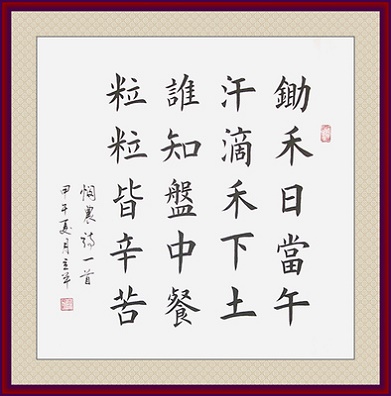 鋤禾日當午
汗滴禾下土
誰知盤中餐
粒粒皆辛苦
憫農詩一首
甲午夏月